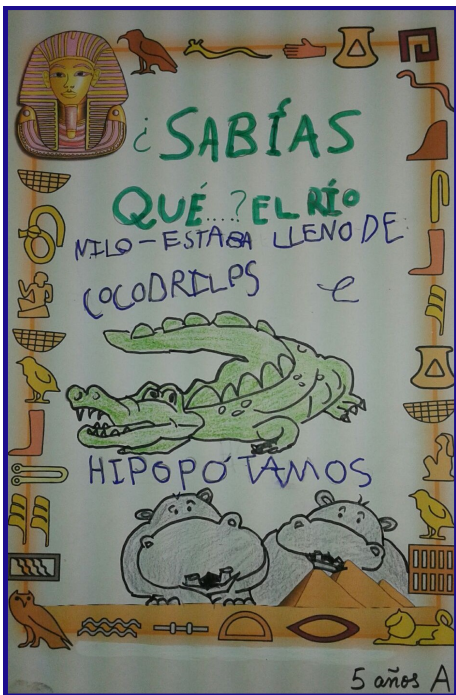 ¿SABÍAS
QUÉ....? EL RÍO
NILO-ESTABA LLENO DE
COCODRILOS e
HIPOPÓTAMOS
5 años A